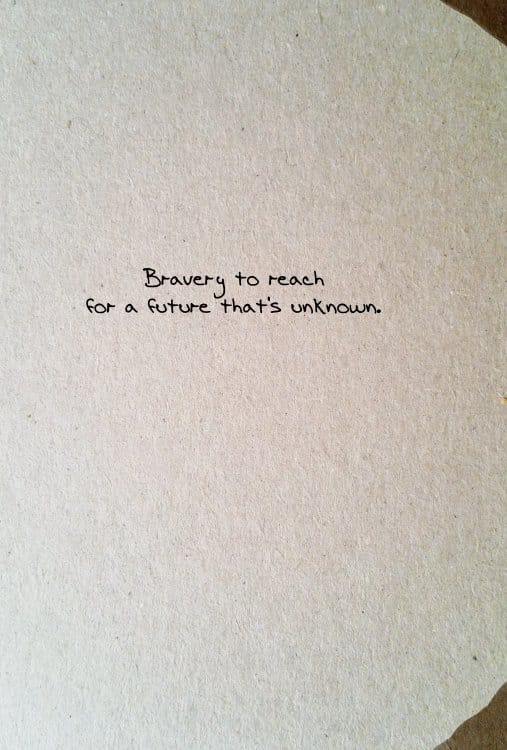 Bravery to reach
for a future that's unknown.